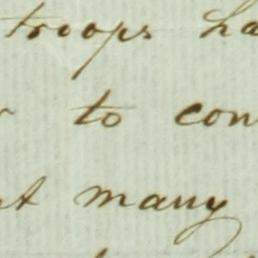 troops ha
to con
many